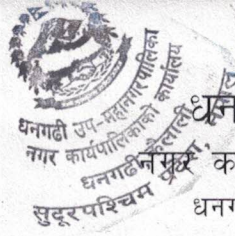 धनगढी उप-महानगरपालिका
नगर कार्यपालिकाको कार्यालय
धनगढी, कैलाली
सुदूरपश्चिम
धन
नगर क
धनग